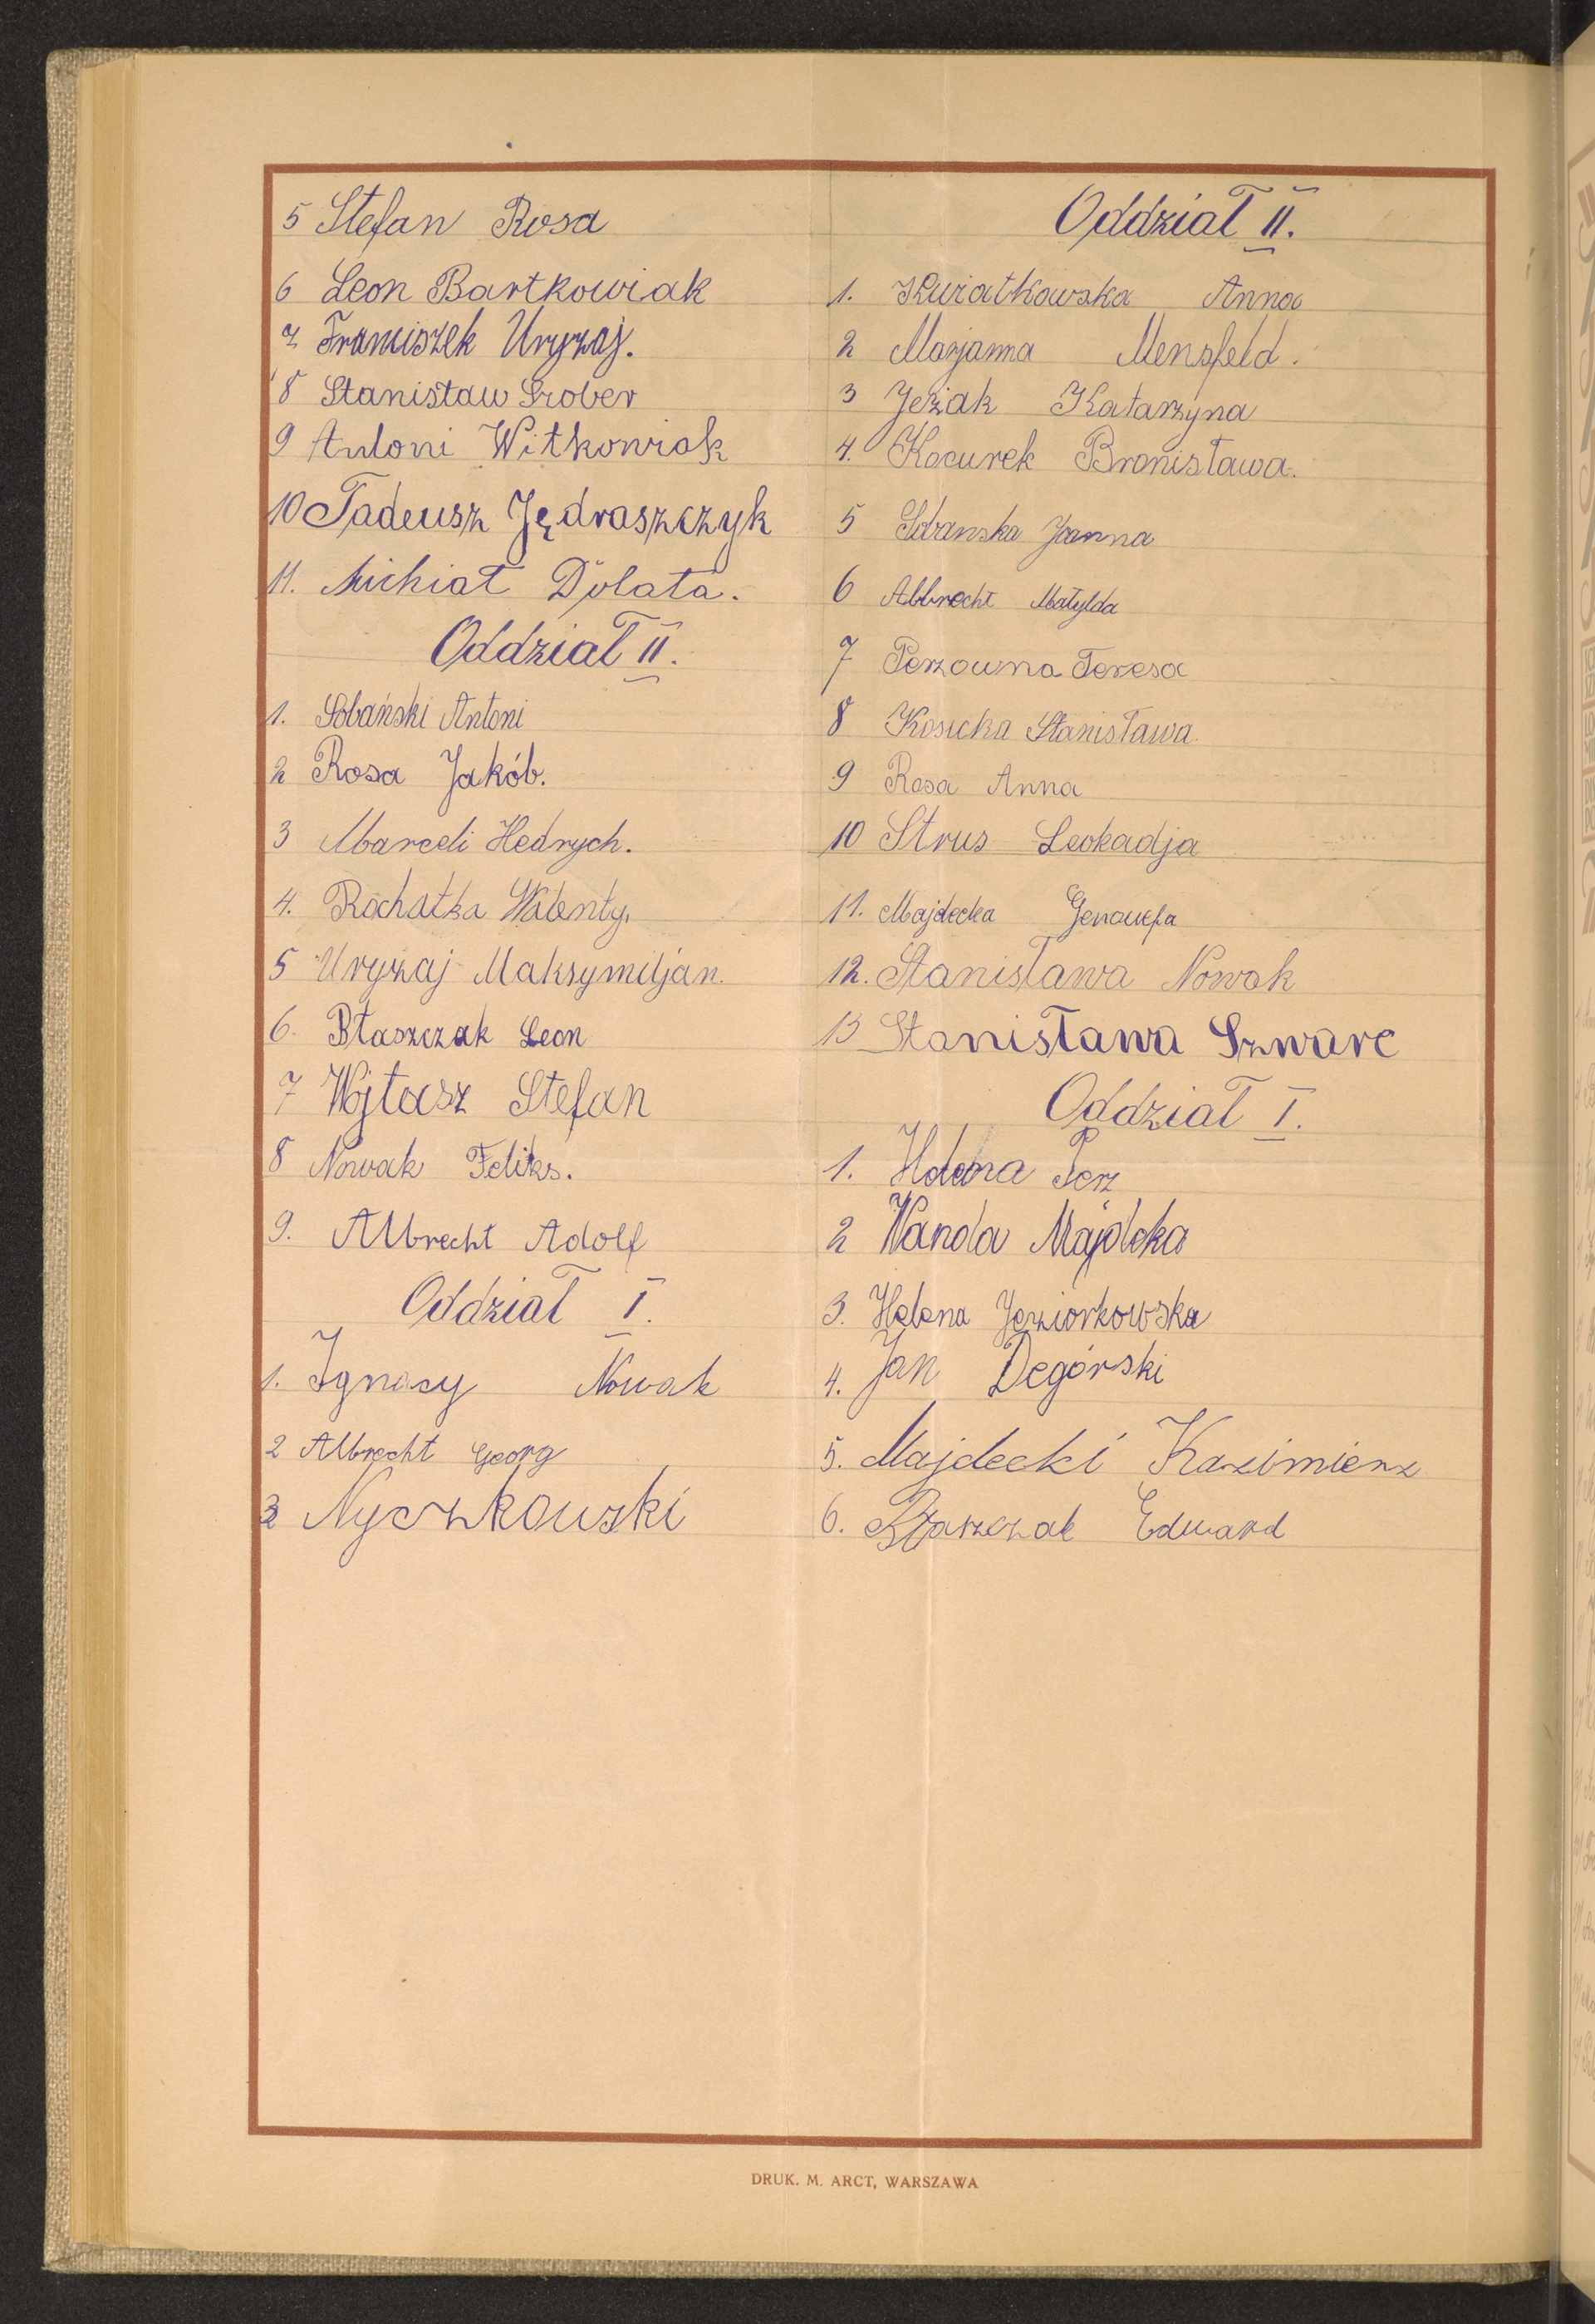 5 Stefan Rosa
6 Leon Bartkowiak
7 Franciszek Uryzaj.
8 Stanisław Grober
9 Antoni Witkowiak
10 Tadeusz Jędraszczyk
11. Michiał Dolata.
Oddział II.
1. Sobański Antoni
2 Rosa Jakób.
3 Marceli Hedrych.
4. Rochatka Walenty.
5 Uryzaj Maksymiljan.
6. Błaszczak Leon
7 Wojtasz Stefan
8 Nowak Feliks.
9. Albrecht Adolf
Oddział I.
1. Ignacy Nowak
2 Albrecht Georg
3 Nyczkowski
Oddział II.
1. Kwiatkowska Anna
2 Marjanna Mensfeld.
3 Jeżak Katarzyna
4. Kocurek Bronisława.
5 Joanna
6 Albrecht Matylda
7 Perzowna Teresa
8 Kosicka Stanisława.
9 Rosa Anna
10 Strus Leokadja
11. Majdecka Genowefa
12. Stanisława Nowak
13 Stanisława Szwarc
Oddział I.
1. Helena Perz
2 Wanda Majdeka
3. Helena Jeziorkowska
4. Jan Degórski
5. Majdecki Kazimierz
6. Błaszczak Edward
DRUK. M. ARCT, WARSZAWA